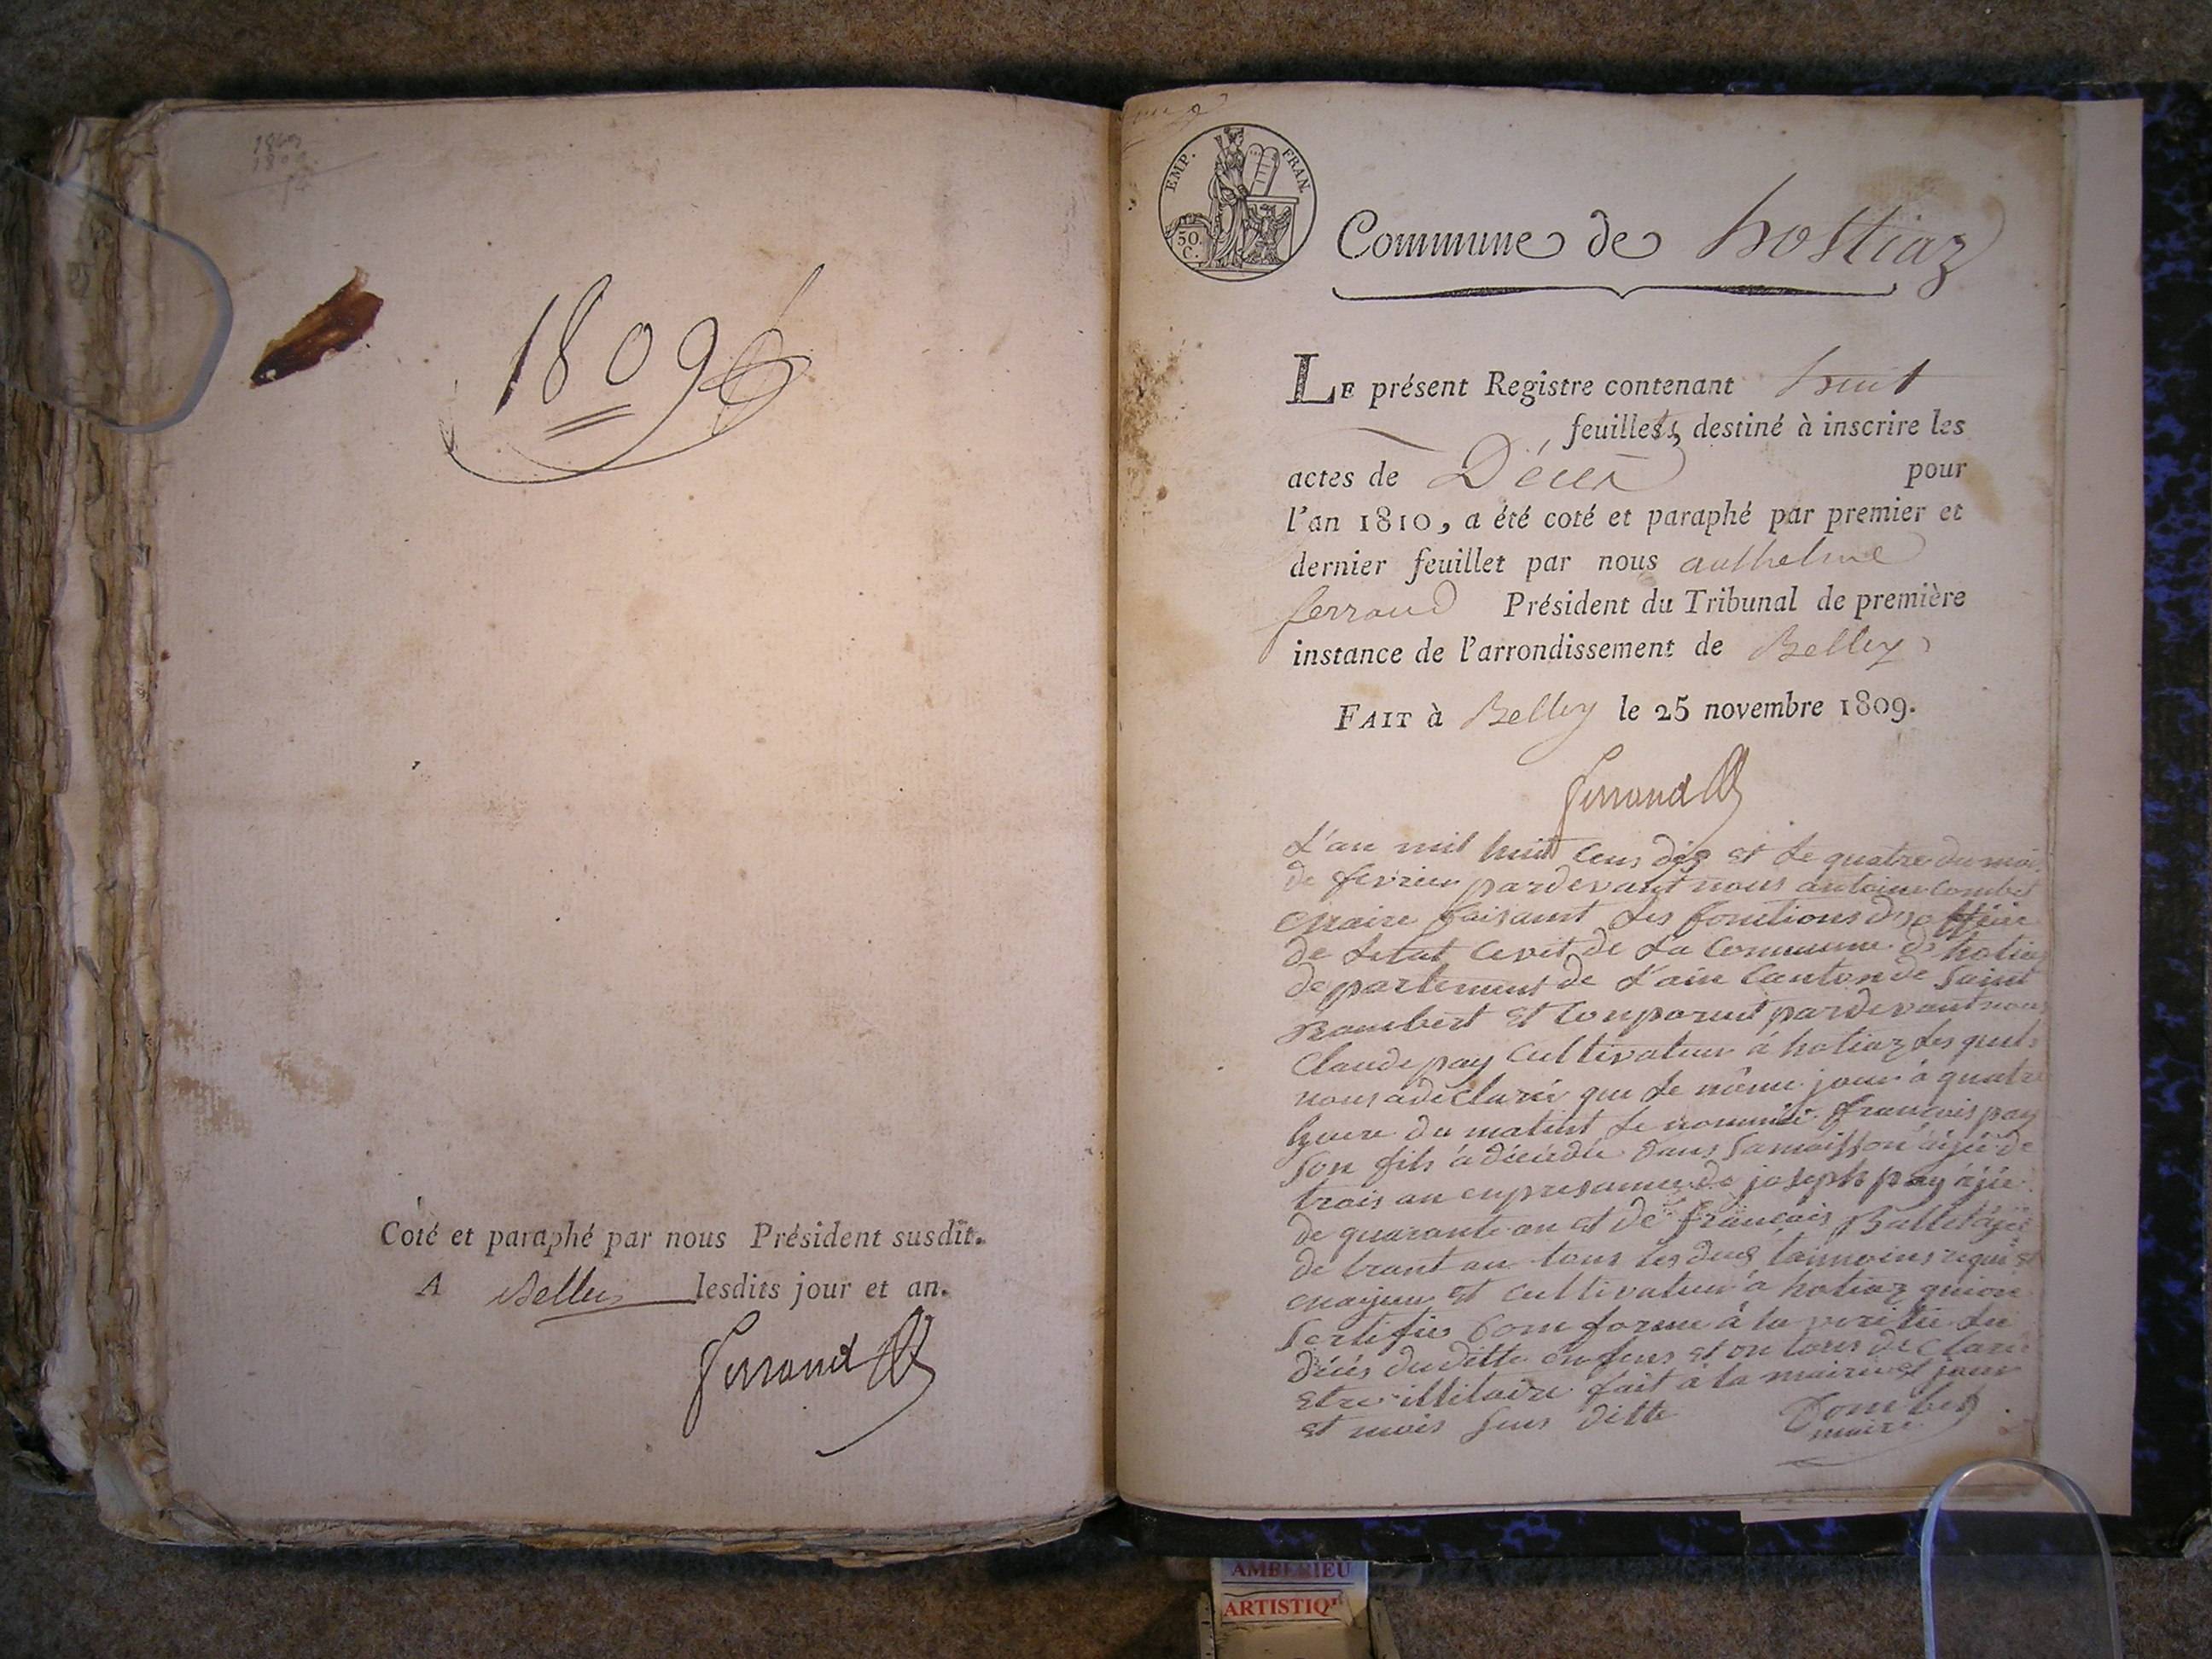 1809
Coté et paraphé par nous Président susdit.
A Belley lesdits jour et an.
Ferrand
EMP. FRAN.
50.
C.
Commune de hostiaz
LE présent Registre contenant huit
feuillets, destiné à inscrire les
actes de Décès pour
l'an 1810, a été coté et paraphé par premier et
dernier feuillet par nous anthelme
ferrand Président du Tribunal de première
instance de l'arrondissement de Belley
FAIT à Belley le 25 novembre 1809.
Ferrand
L'an mil huit cens dix et le quatre du mois
de fevrier pardevant nous antoine Combet
maire faisant les fonctions d'officier
de letat Cevit de La Commune de hotiaz
departement de L'ain Canton de saint
Rambert et Conparut pardevant nous
Claude pay Cultivateur à hotiaz Les quel
nous a declaré que le même jour à quatre
heure du matint le nommée francois pay
son fils à décédé dans sa maisson agée de
trois an en presance de joseph pay ajée
de quarante an et de francois Ballet ajée
de trant an tous les deux taimoins requis
majeur et cultivateur à hotiaz qui on
sertifies Conforme à la veritée du
décés duditte enfens et on tous declaré
etre illitaire fait à la mairie et jour
et mois sens ditte Combet
maire
AMBERIEU
ARTISTIQ